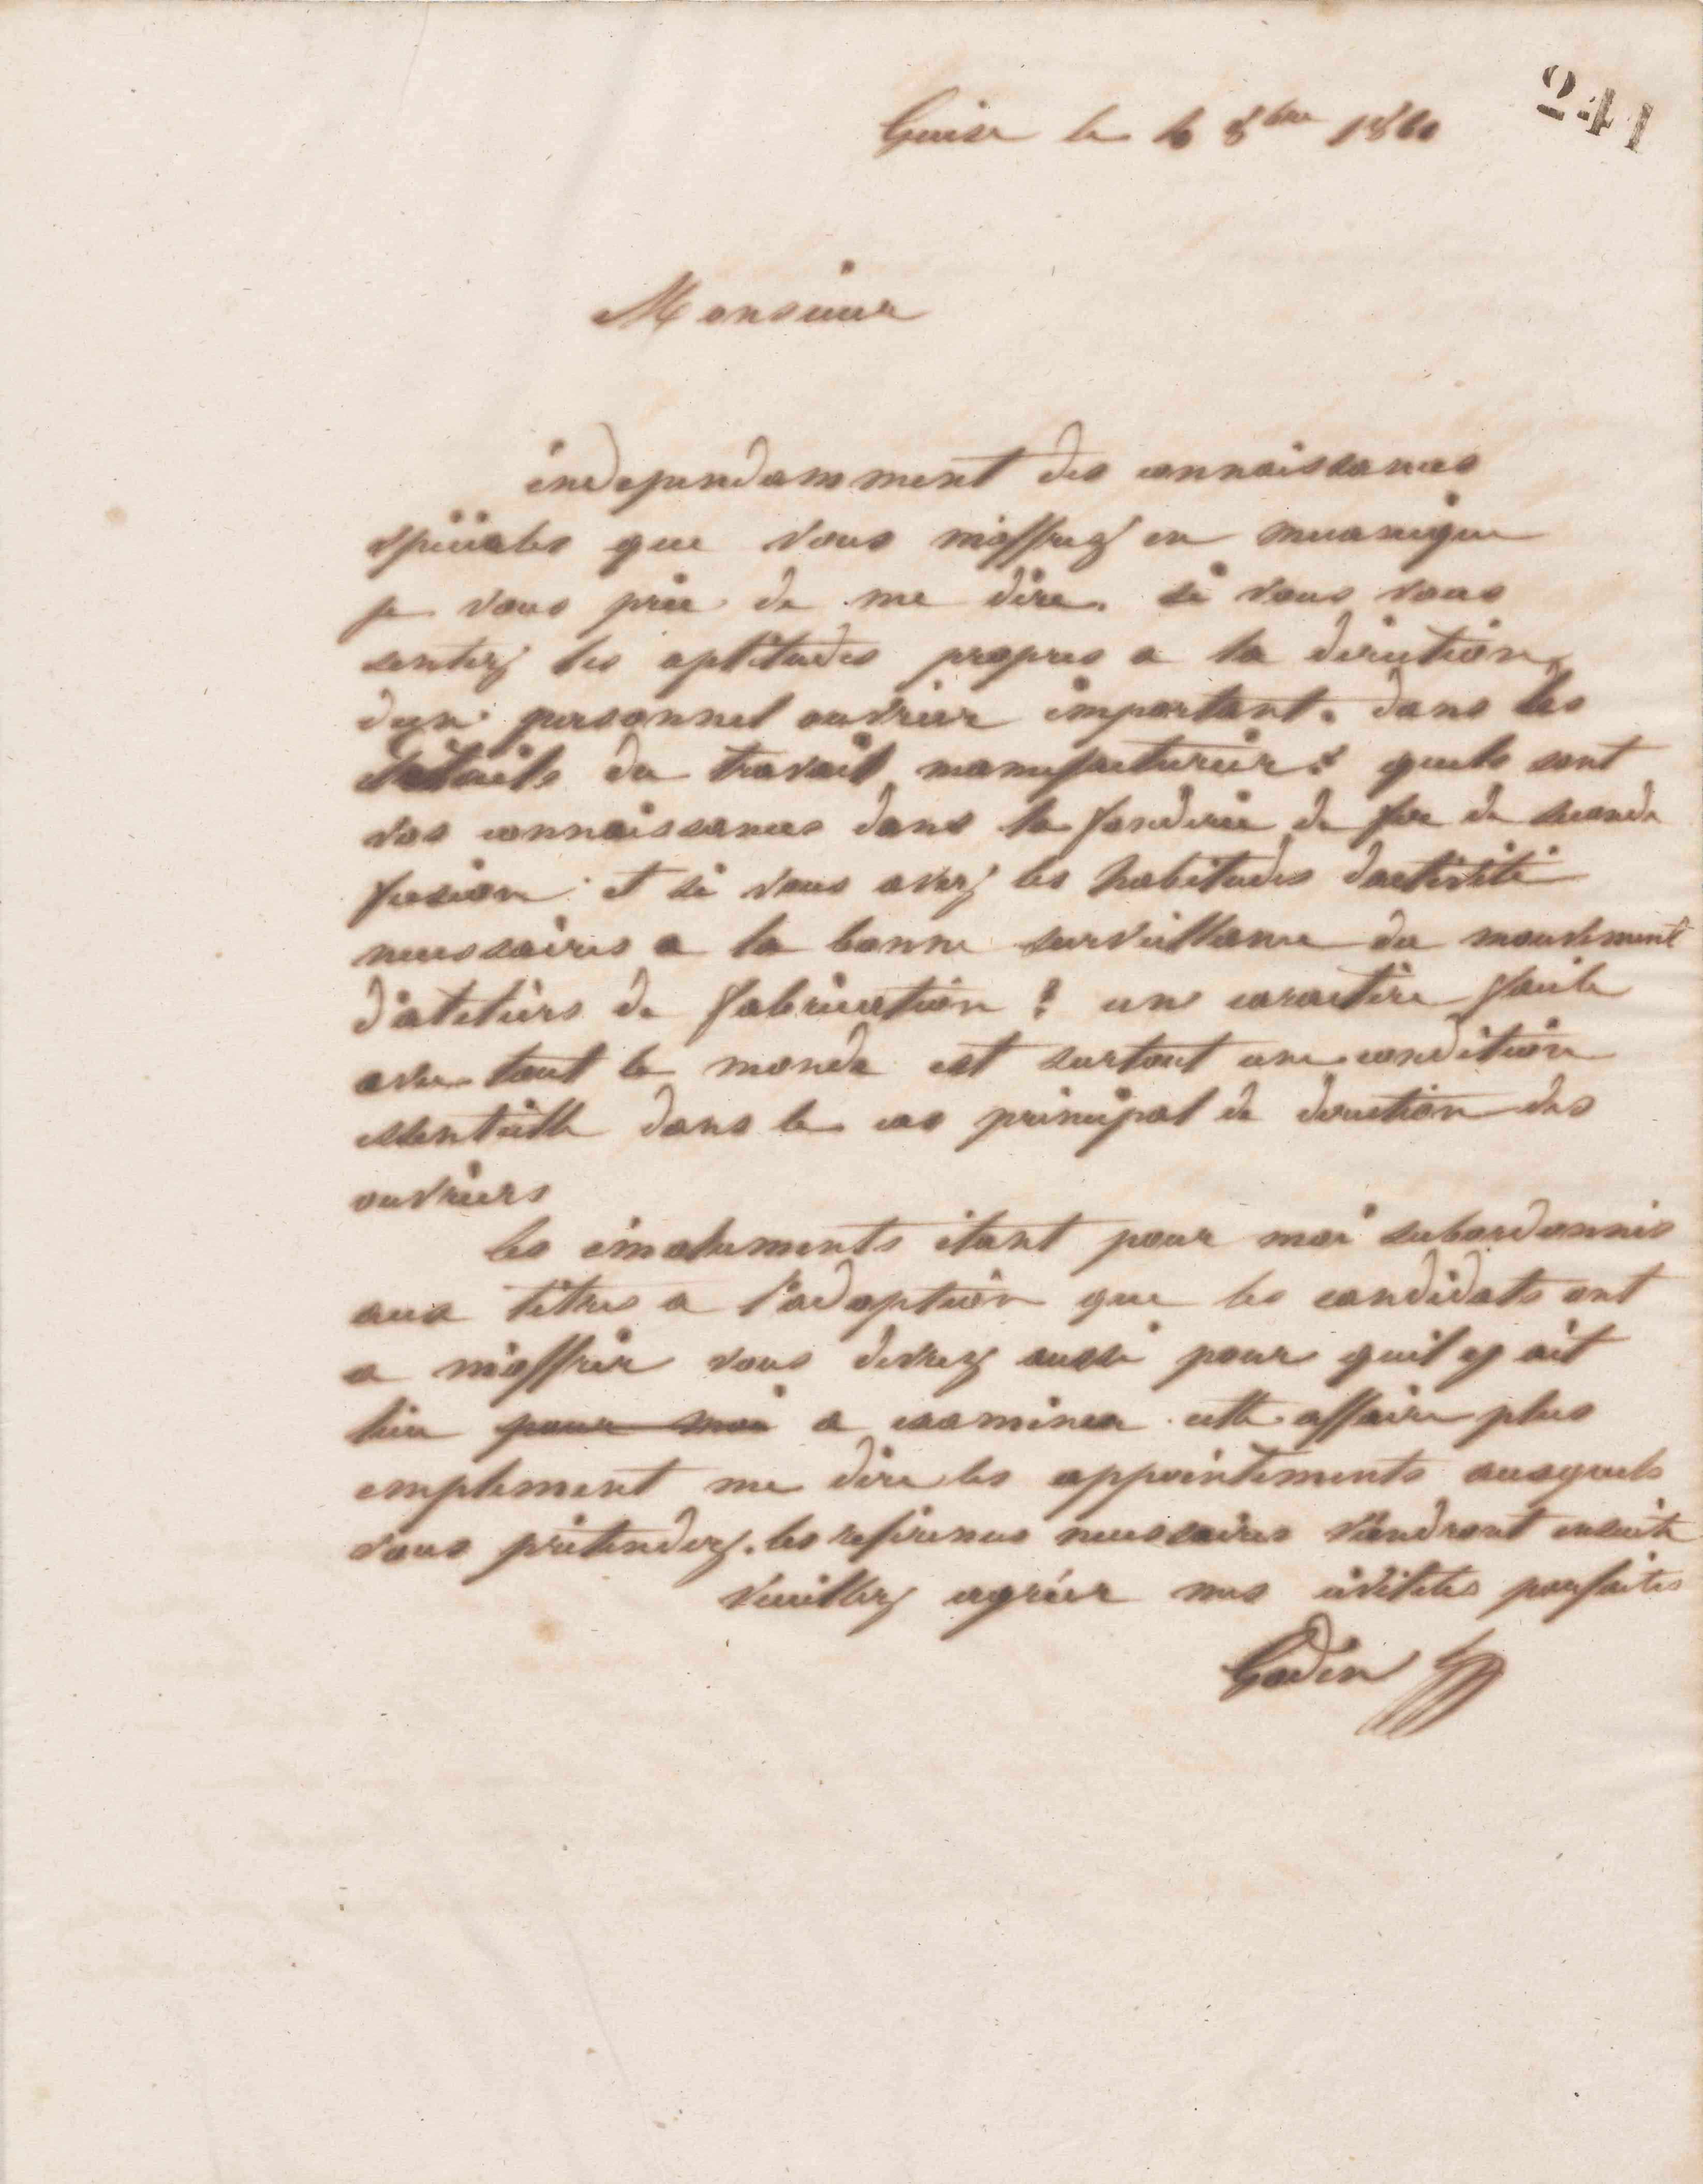 241
Guise le 6 8bre 1860
Monsieur
independamment des connaissances
spéciales que vous m'offrez en mecanique
je vous prie de me dire. si vous vous
sentez les aptitudes propres a la direction
d'un personnel ouvrier important. dans les
details du travail manufacturier? quels sont
vos connaissances dans la fonderie de fer de seconde
fusion et si vous avez les habitudes d'activité
necessaires a la bonne surveillance du mouvement
d'ateliers de fabrication ? un caractère facile
avec tout le monde est surtout une condition
essentielle dans le cas principal de direction des
ouvriers
les émoluments étant pour moi subordonnés
aux titres a l'adoption que les candidats ont
a m'offrir vous devrez aussi pour qu'il y ait
lieu pour moi a examiner cette affaire plus
emplement me dire les appointements auxquels
vous prétendez. les references necessaires viendront ensuite
Veuillez agréer mes civilités parfaites
Godin